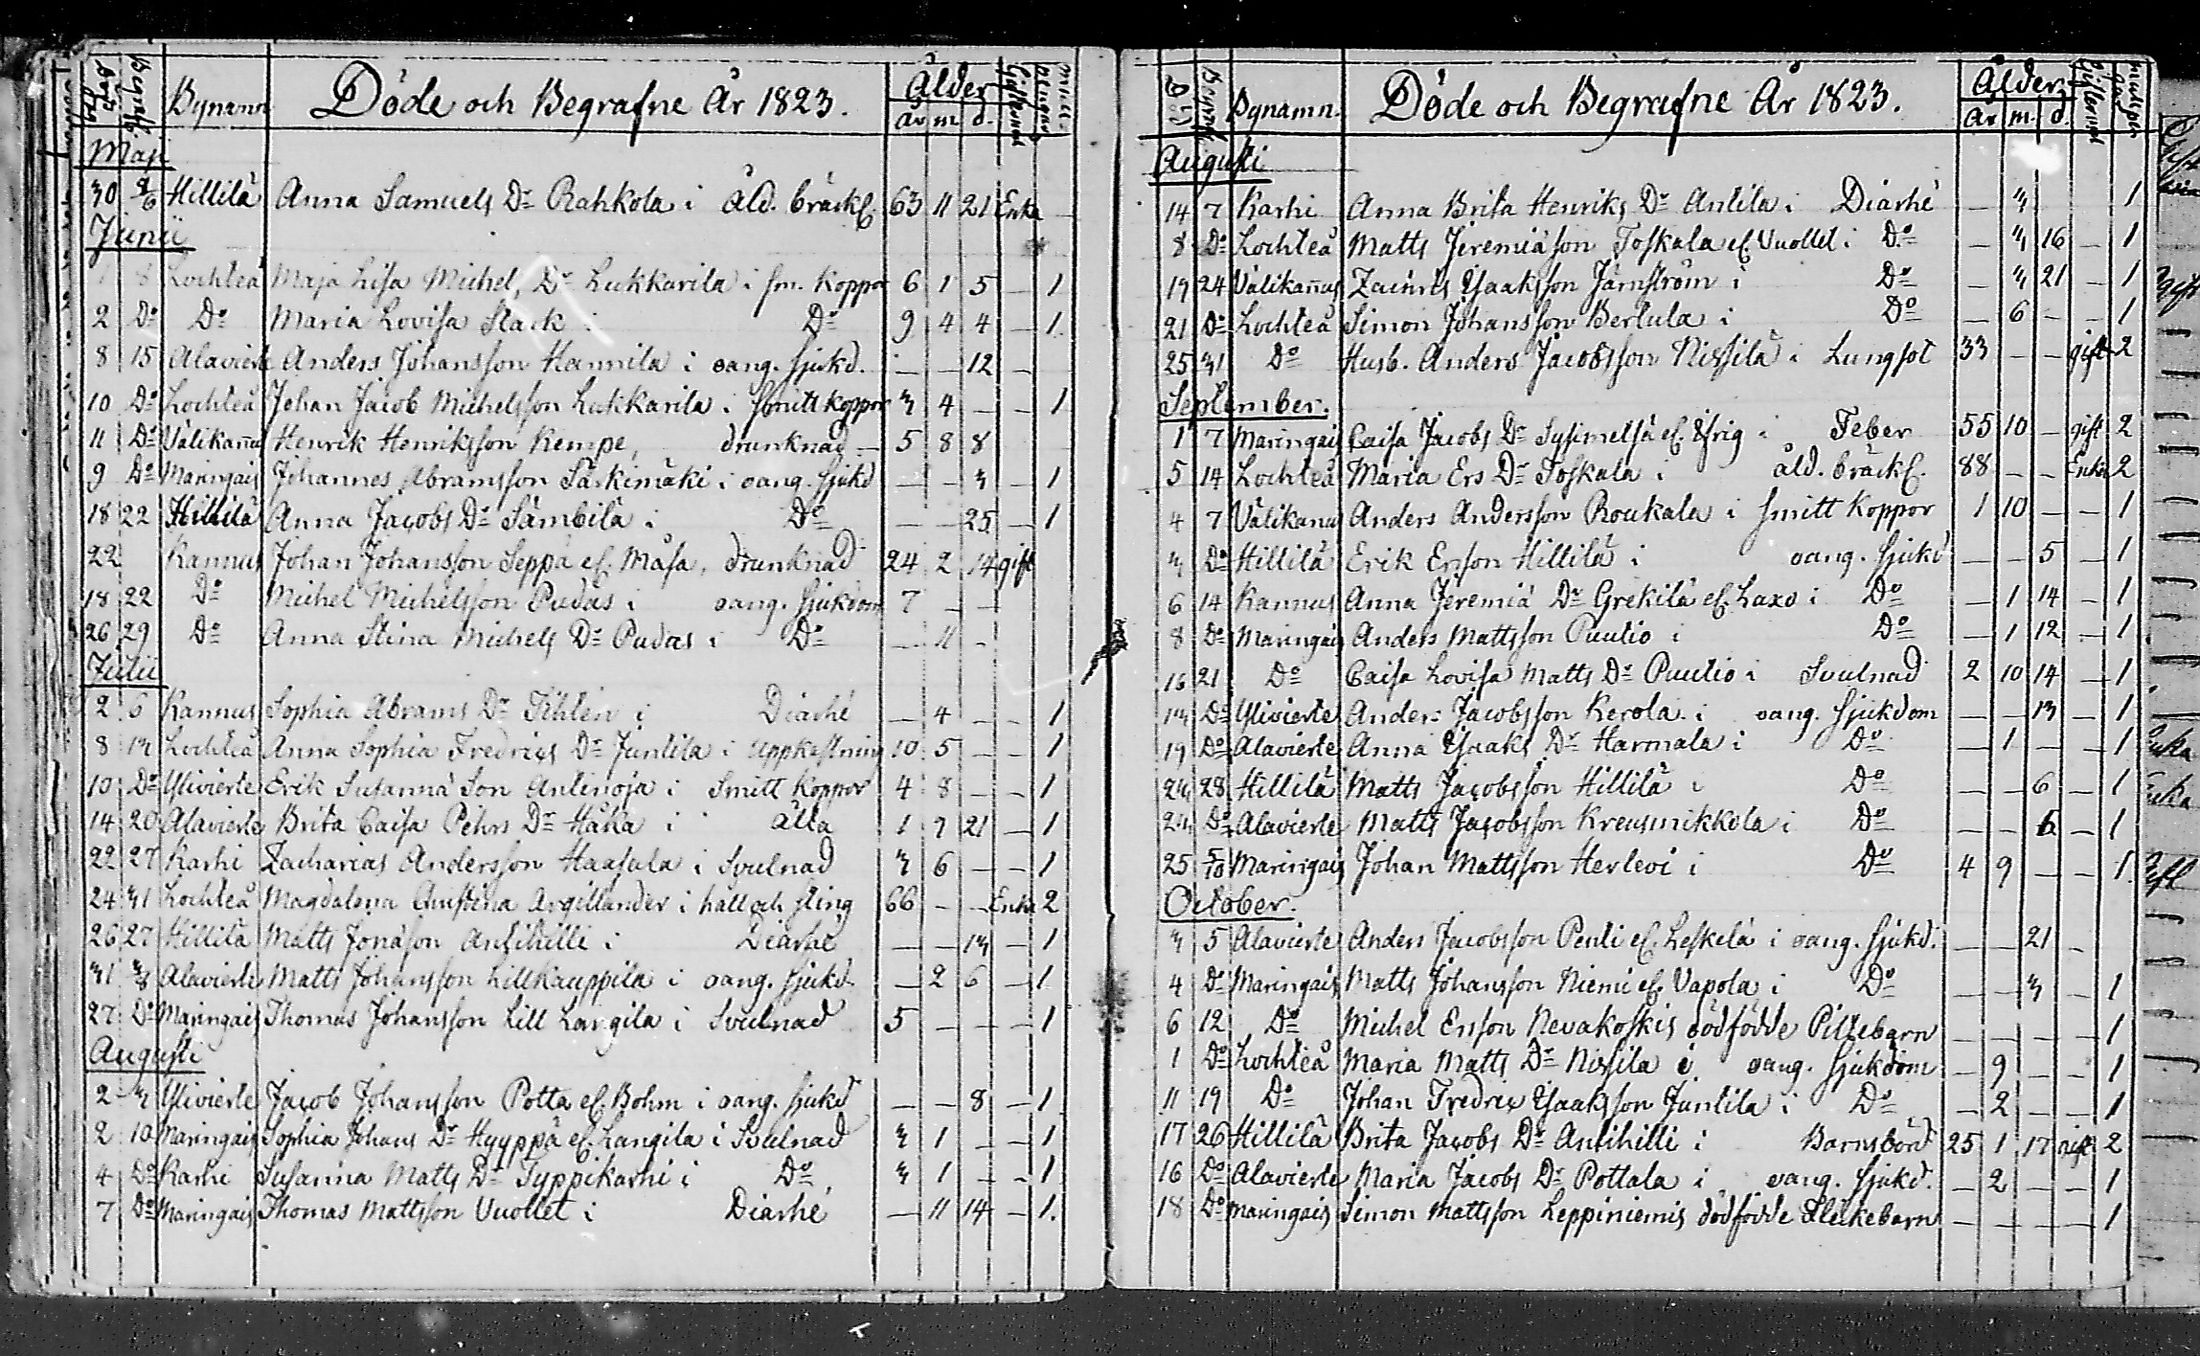 Död Begrafn. Bynamn Döde och Begrafne År 1823. Ålder år m. d.
Maji
30 2/6 Hillilä Anna Samuels Dr Rahkola i åld. bräckl. 63 11 21 Enka
Junii
1 8 Lochteå Maja Lisa Michels Dr Lukkarila i sm. koppor 6 1 5 – 1
2 Do Do Maria Lovisa Stark i Do 9 4 4 – 1
8 15 Alavierte Anders Johansson Hannila i oang. sjukd. – – 12 –
10 Do Lochteå Johan Jacob Michelsson Lukkarila i smittkoppor 3 4 – – 1
11 Do Välikan̄us Henrik Henriksson Kempe, drunknad – 5 8 8
9 Do Maringais Johannes Abramsson Särkimäki i oang. sjukd – – 3 – 1
18 22 Hillilä Anna Jacobs Dr Sämbilä i Do – – 25 – 1
22 Kannus Johan Johansson Seppä el. Måsa, drunknad 24 2 14 gift
18 22 Do Michel Michelsson Pudas i oang. sjukdom 7 – –
26 29 Do Anna Stina Michels Dr Pudas i Do – 11 –
Julii
2 6 Kannus Sophia Abrams Dr Tihlen i Diarhé – 4 – – 1
8 13 Lochteå Anna Sophia Fredrics Dr Juntila i uppkastning 10 5 – – 1
10 Do Ylivierte Erik Susanna Son Antinoja i Smitt koppor 4 8 – – 1
14 20 Alavierte Brita Caisa Pehrs Dr Håka i älta 1 7 21 – 1
22 27 Karhi Zacharias Andersson Haasala i Svulnad 3 6 – – 1
24 31 Lochteå Magdalena Christina Argillander i håll och sting 66 – – Enka 2
26 27 Hillilä Matts Jonasson Antihilli i Diarhé – – 13 – 1
31 3/8 Alavierte Matts Johansson Lillkauppila i oang. sjukd. – 2 6 – 1
27 Do Maringais Thomas Johansson Lill Largila i Svulnad 5 – – – 1
Augusti
2 3 Ylivierte Jacob Johansson Potta el. Bohm i oang. sjukd – – 8 – 1
2 10 Maringais Sophia Johans Dr Hyyppä el. Langila i Svulnad 3 1 – – 1
4 Do Karhi Susanna Matts Dr Typpikarhi i Do 3 1 – – 1
7 Do Maringais Thomas Mattsson Vuollet i Diarhé – 11 14 – 1.
Död Bynamn. Döde och Begrafne År 1823. Ålder år m. d.
Augusti
14 7 Karhi Anna Brita Henriks Dr Antila i Diarhé – 3 1
8 Do Lochteå Matts Jeremiasson Toskala el. Vuollet i Do – 3 16 – 1
19 24 Välikan̄us Zachris Ysaaksson Järnström i Do – 3 21 – 1
21 Do Lochteå Simon Johansson Bertula i Do – 6 – – 1
25 31 Do Husb. Anders Jacobsson Nissilä i Lungsot 33 – – gift 2
September.
1 7 Maringais Caisa Jacobs Dr Sysimetsä el. Yrig i Feber 55 10 – gift 2
5 14 Lochteå Maria Ers Dr Toskala i åld. bräckl. 88 – – Enka 2
4 7 Välikanus Anders Andersson Roukala i smitt koppor 1 10 – – 1
3 Do Hillilä Erik Ersson Hillilä i oang. sjukd – – 5 – 1
6 14 Kannus Anna Jeremiä Dr Grekilä el. Laxo i Do – 1 14 – 1
8 Do Maringais Anders Mattsson Puutio i Do – 1 12 – 1
16 21 Do Caisa Lovisa Matts Dr Puutio i Svulnad 2 10 14 – 1
13 Do Ylivierte Anders Jacobsson Kerola i oang. sjukdom – – 13 – 1
19 Do Alavierte Anna Ysaaks Dr Harmala i Do – 1 – – 1
23 28 Hillilä Matts Jacobsson Hillilä i Do – – 6 – 1
23 Do Alavierte Matts Jacobsson Kreusmikkola i Do – – 6 – 1
25 5/10 Maringais Johan Mattsson Herlevi i Do 4 9 – – 1
October.
3 5 Alavierte Anders Jacobsson Penti el. Leskelä i oang. sjukd. – – 21 –
4 Do Maringais Matts Johansson Niemi el. Vapola i Do – – 3 – 1
6 12 Do Michel Ersson Nevakoskis dödfödde Piltebarn – – – – 1
1 Do Lochteå Maria Matts Dr Nissila i oang. sjukdom – 9 – – 1
11 19 Do Johan Fredric Ysaaksson Juntila i Do – 2 – – 1
17 26 Hillilä Brita Jacobs Dr Antihilli i Barnsbörd 25 1 17 gift 2
16 Do Alavierte Maria Jacobs Dr Pottala i oang. sjukd. – 2 – – 1
18 Do Maringais Simon Mattsson Leppiniemis dödfödde Flickebarn – – – – 1